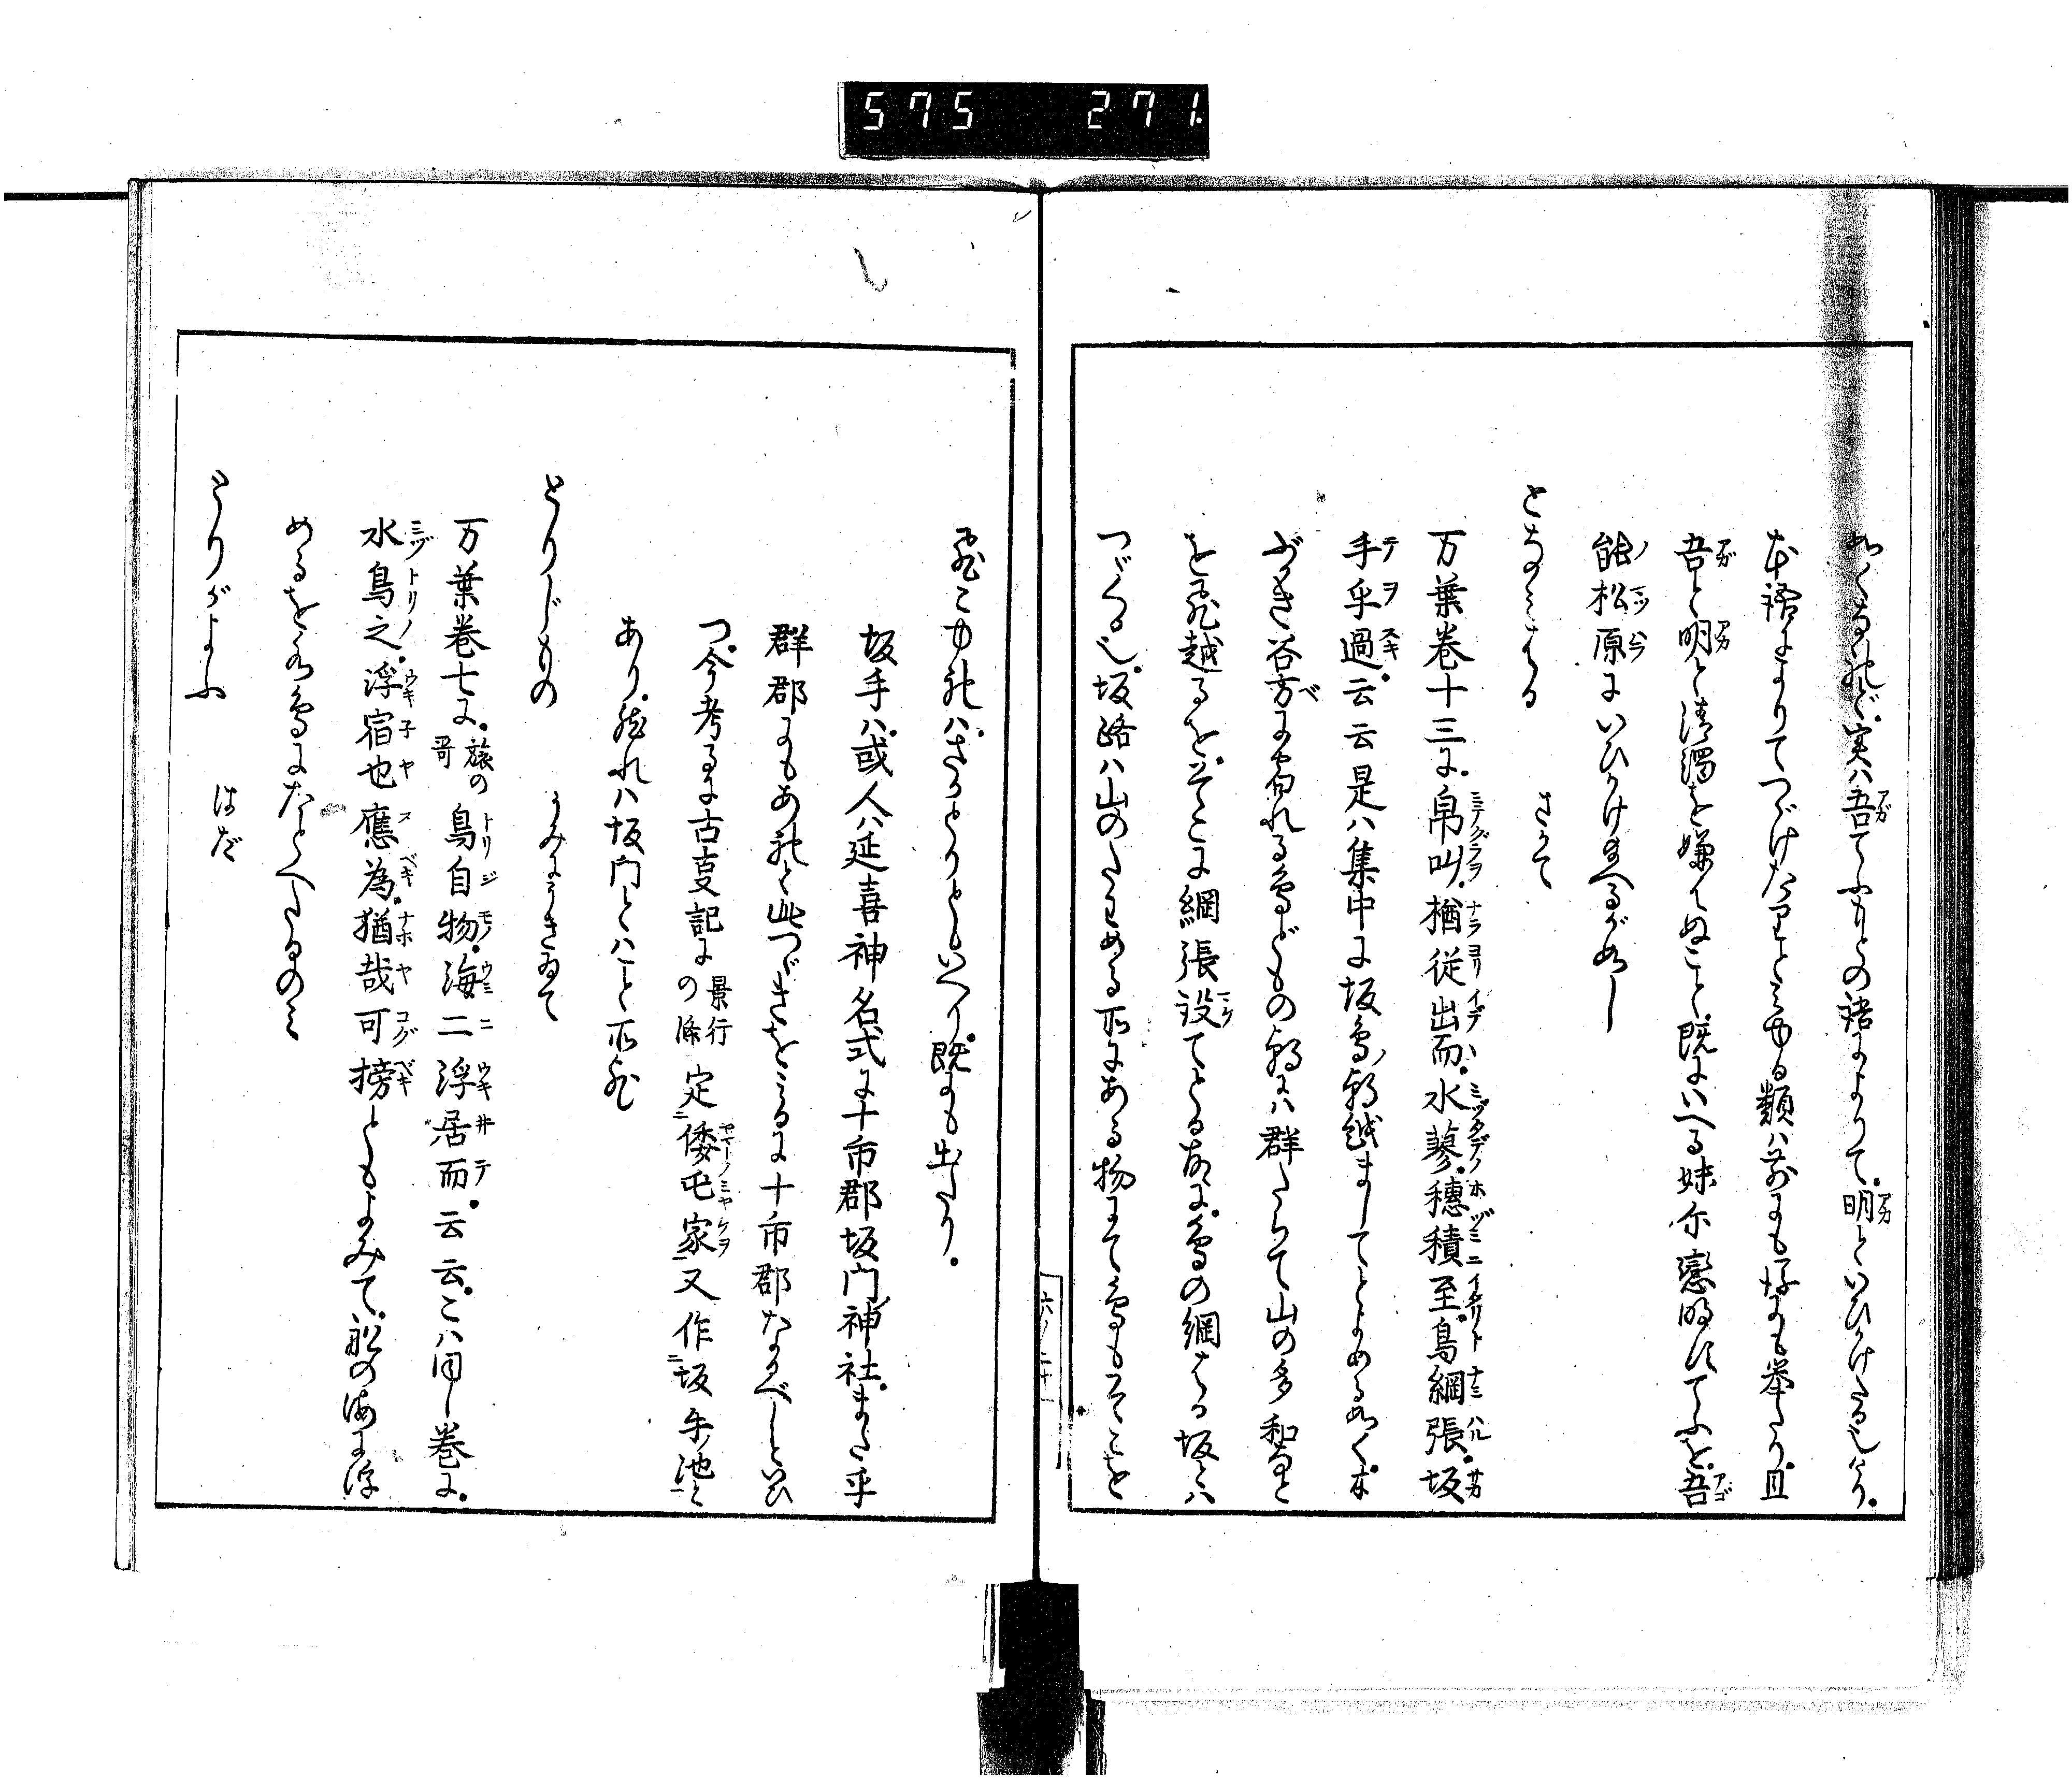 575 271
如くなれど.実ハ吾てふもとの語によりて.明といひかけたる也けり.
本語によりてつゞけたりとみゆる類ハ前にも後にも挙たり.且
吾と明と清濁を嫌はぬこと.既にいへる妹尓戀てふを.吾
能松原にいひかけたるが如し
となみはる さかて
万葉巻十三に.帛叫.楢従出而.水蓼.穗積至.鳥網張.坂
手乎過.云云是ハ集中に坂鳥ノ朝越ましてとよめる如く.木
ぶかき谷方に宿れる鳥どもの朝にハ群たちて山の多和など
を飛越るを.そこに網張設てとる故に.鳥の網はる坂とハ
つゞくる也.坂路ハ山のたわめる所にある物にて鳥もそこを
六ノ二十一
飛こゆれハ.さかとりともいへり.既にも出たり.
坂手ハ.或人ハ延喜神名式に十市郡坂門神社.また平
群郡にもあれど此つゞきをみるに十市郡なるべしといひ
つ.今考るに古事記に景行の條定倭屯家又作坂手池と
あり.然れハ坂門とハこと所歟
とりじもの うみにうきゐて
万葉巻七に.旅の哥鳥自物.海二浮居而.云云.こハ同し巻に.
水鳥之.浮宿也應為.猶哉可榜ともよみて.船の海に浮
めるを水鳥にたとへたるのミ
とりがよふ はだ